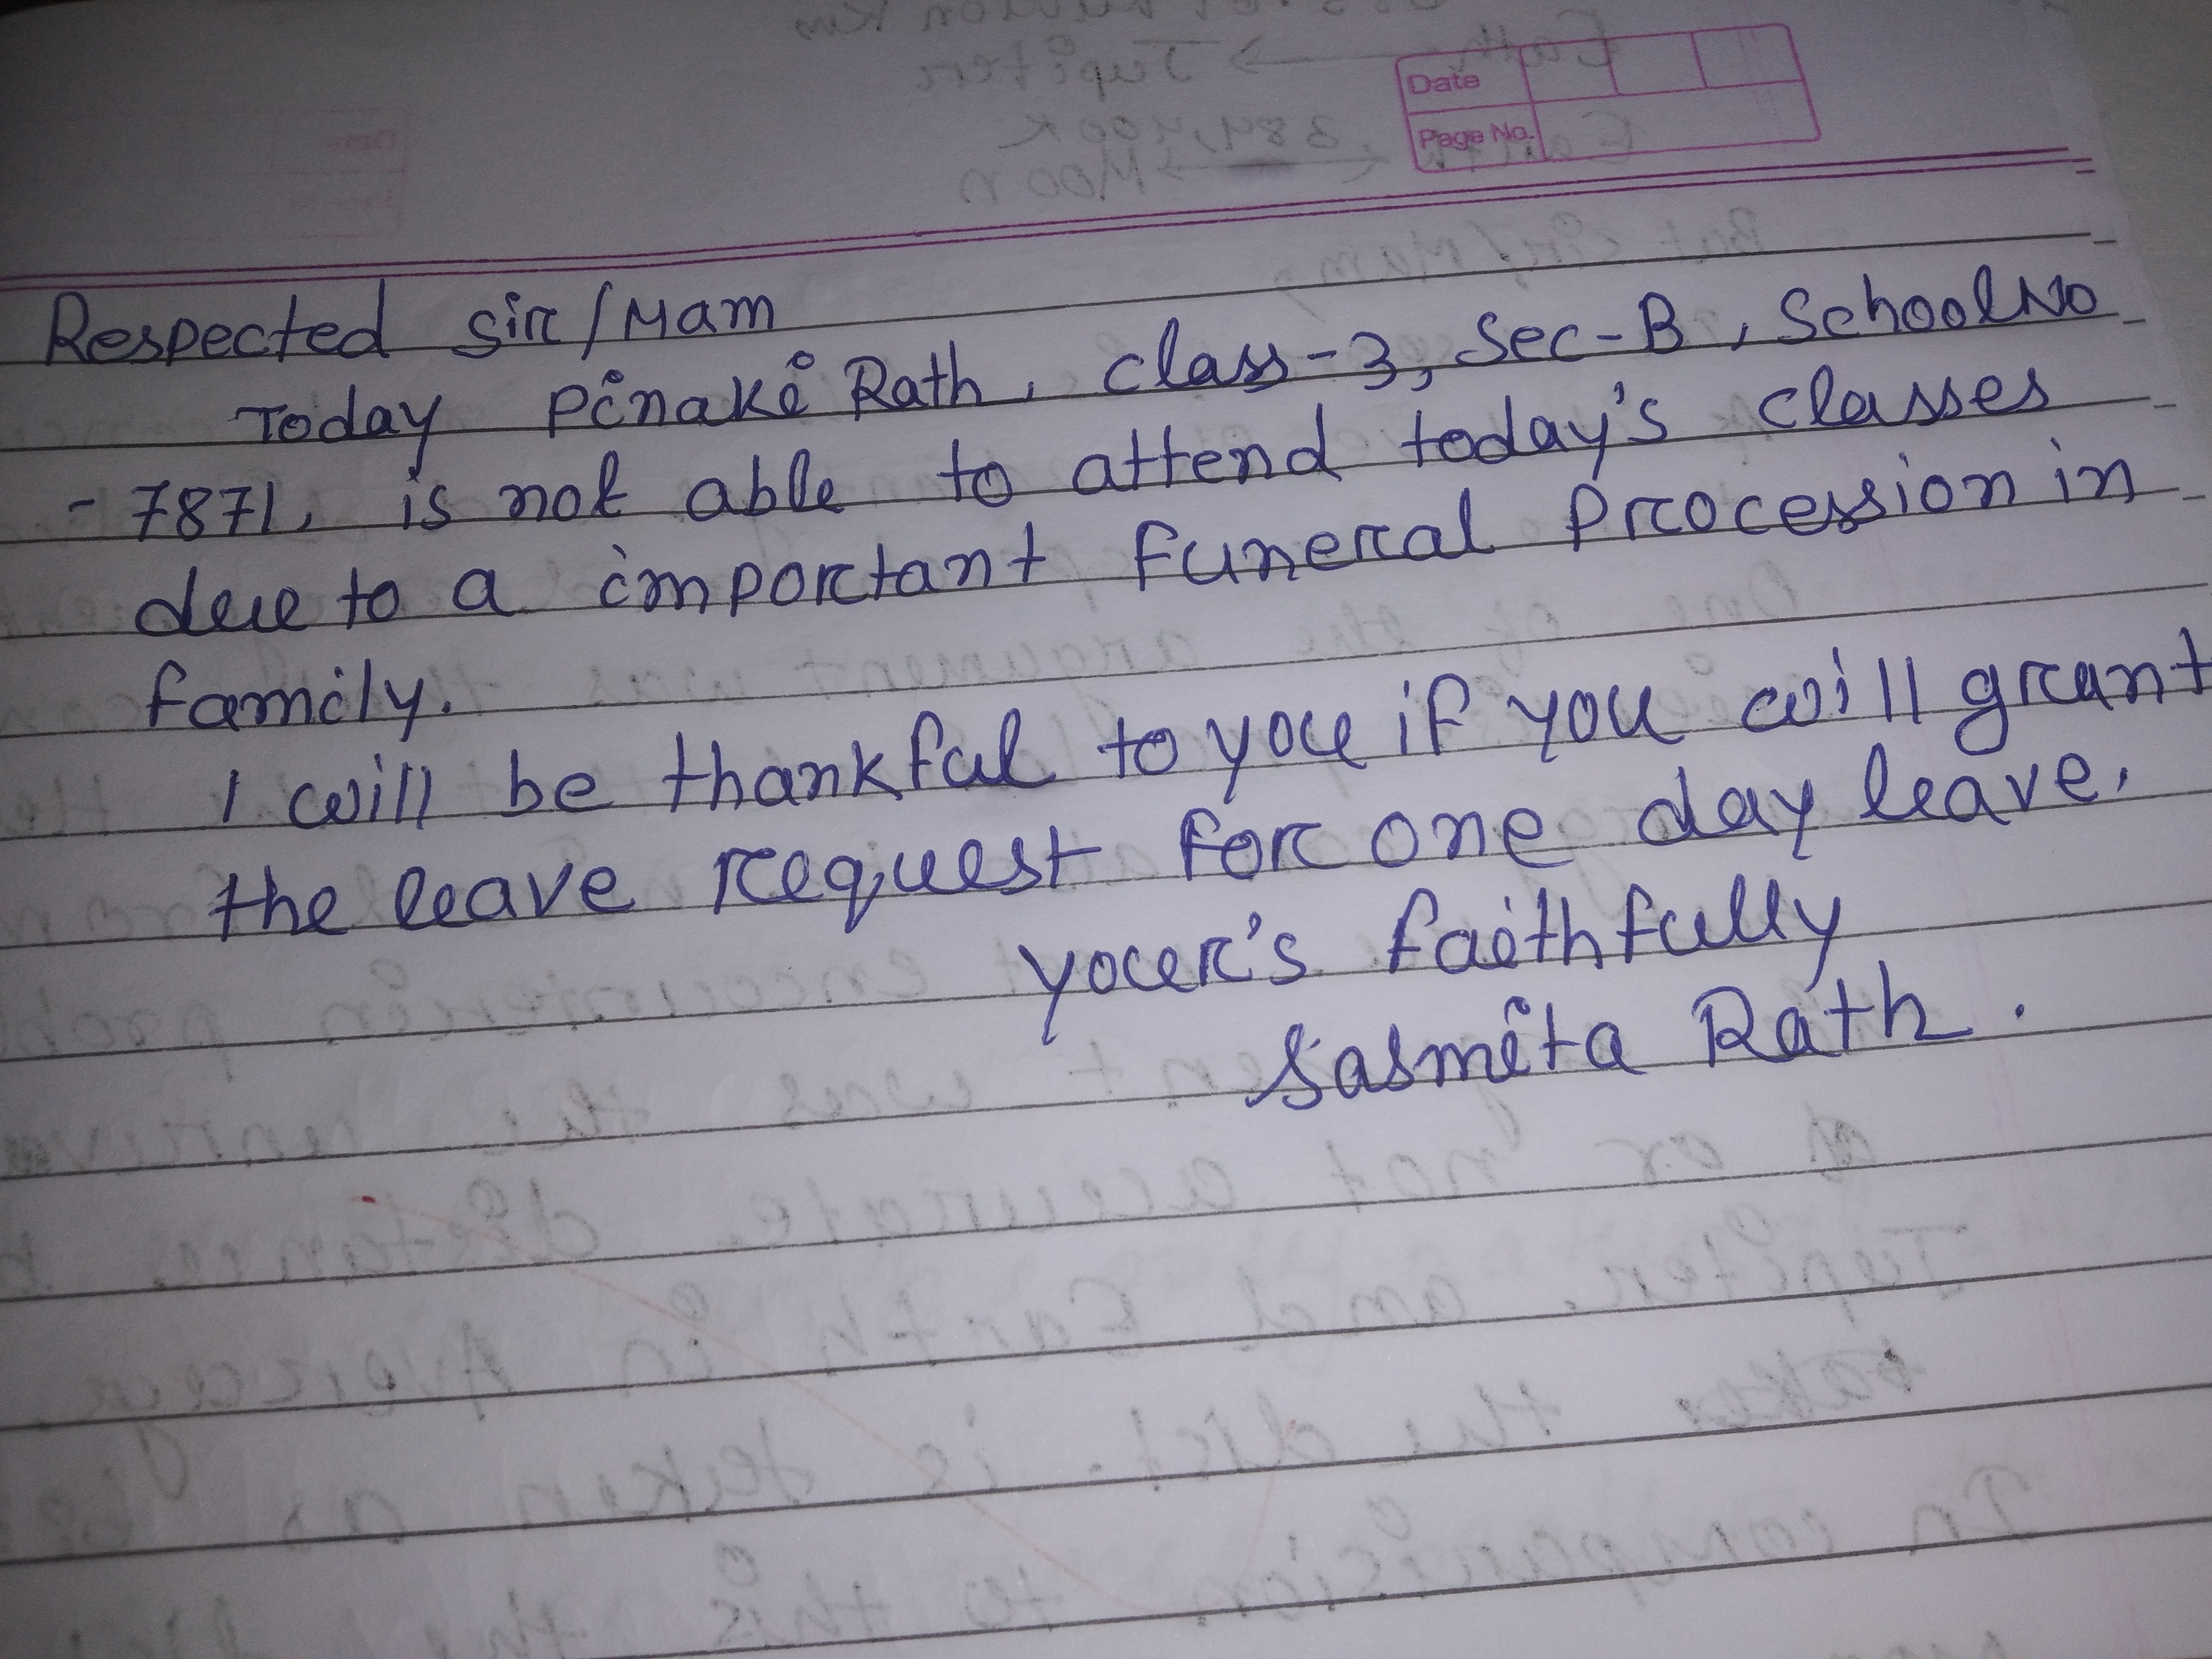 Date
Page No.
Respected Sir/Mam
Today Pinaki Rath, class-3, Sec-B, School No
- 7871, is not able to attend today's classes
due to a important funeral procession in
family.
I will be thankful to you if you will grant
the leave request for one day leave.
your's faithfully
Sasmita Rath.